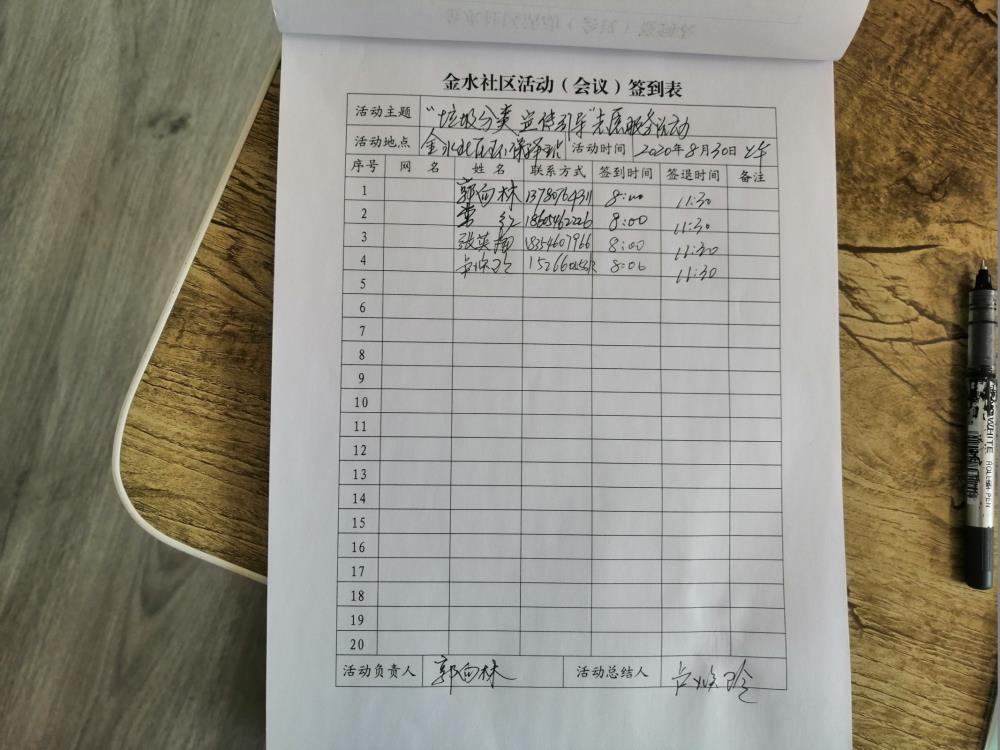 金水社区活动（会议）签到表
活动主题 “垃圾分类 宣传引导”志愿服务活动
活动地点 金水社区环保驿站 活动时间 2020年8月30日上午
序号 网 名 姓 名 联系方式 签到时间 签退时间 备注
1 郭向林 13780764311 8:00 11:30
2 常 红 18605462226 8:00 11:30
3 张英梅 18354607966 8:00 11:30
4 15266 8:00 11:30
5
6
7
8
9
10
11
12
13
14
15
16
17
18
19
20
活动负责人 郭向林 活动总结人
WHITE ROLLISH PEN